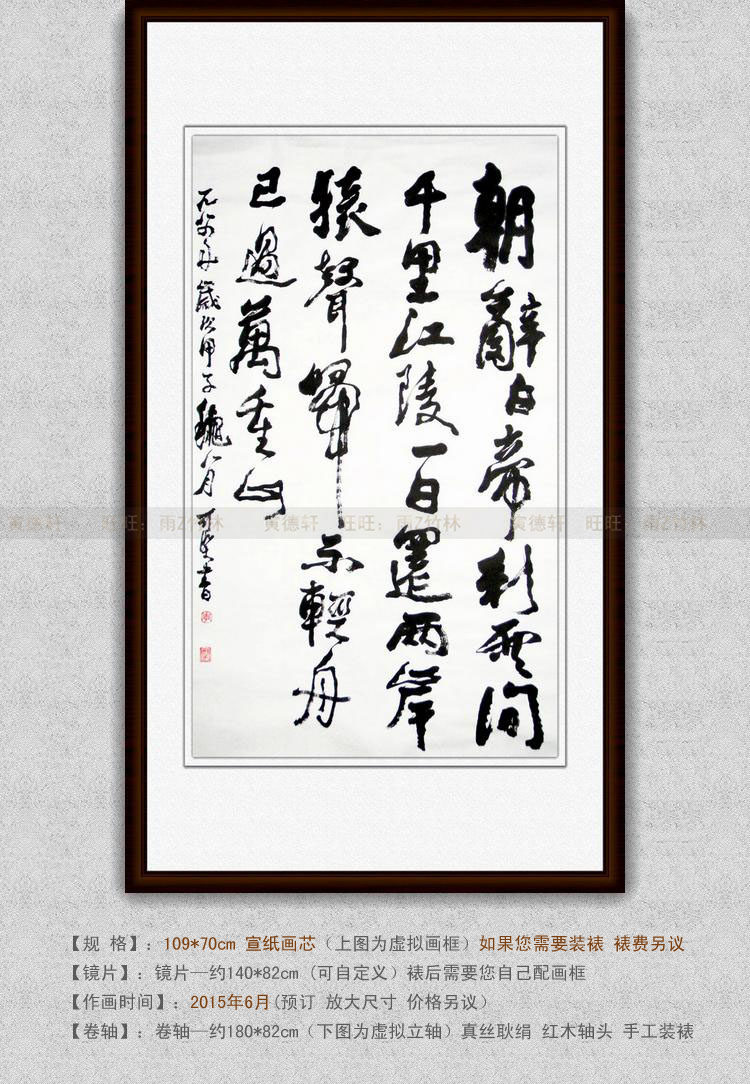 朝辭白帝彩雲間
千里江陵一日還兩岸
猿聲啼不輕舟
已過萬重山
年歲於甲子穐八月書
寅德轩 旺旺：雨Z竹林 寅德轩 旺旺：雨Z竹林 寅德轩 旺旺：雨Z竹林
【规 格】：109*70cm 宣纸画芯（上图为虚拟画框）如果您需要装裱 裱费另议
【镜片】：镜片—约140*82cm (可自定义）裱后需要您自己配画框
【作画时间】：2015年6月(预订 放大尺寸 价格另议）
【卷轴】：卷轴—约180*82cm（下图为虚拟立轴）真丝耿绢 红木轴头 手工装裱